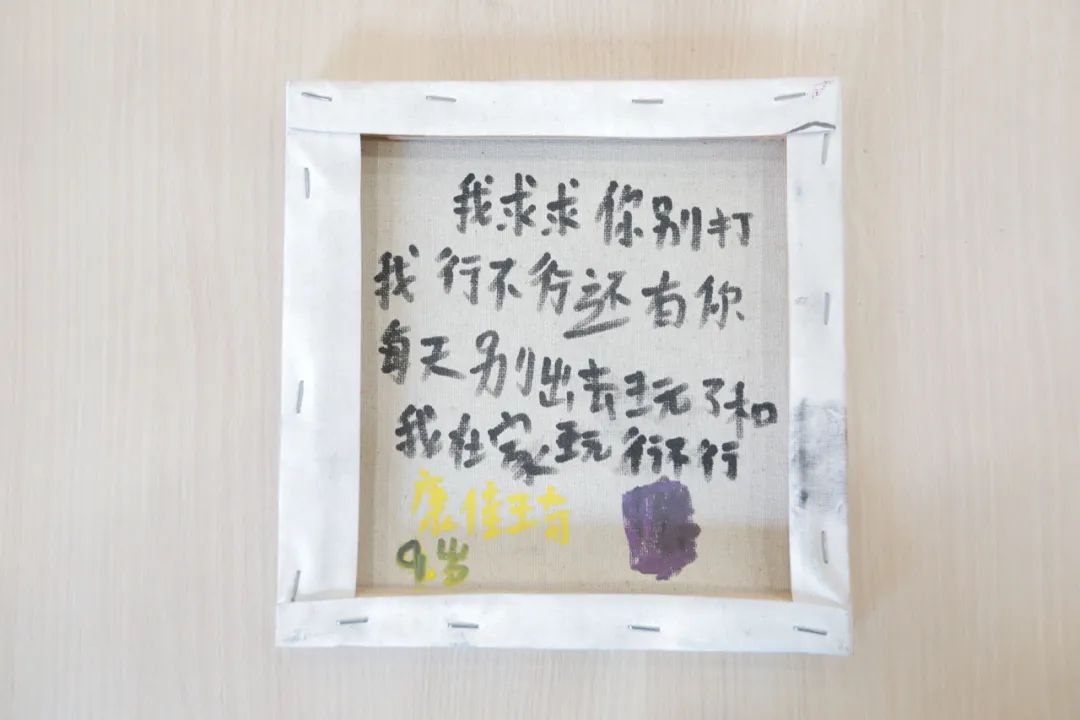 我求求你别打
我行不行还有你
每天别出去玩了和
我在家玩行不行
康佳琦
9.岁